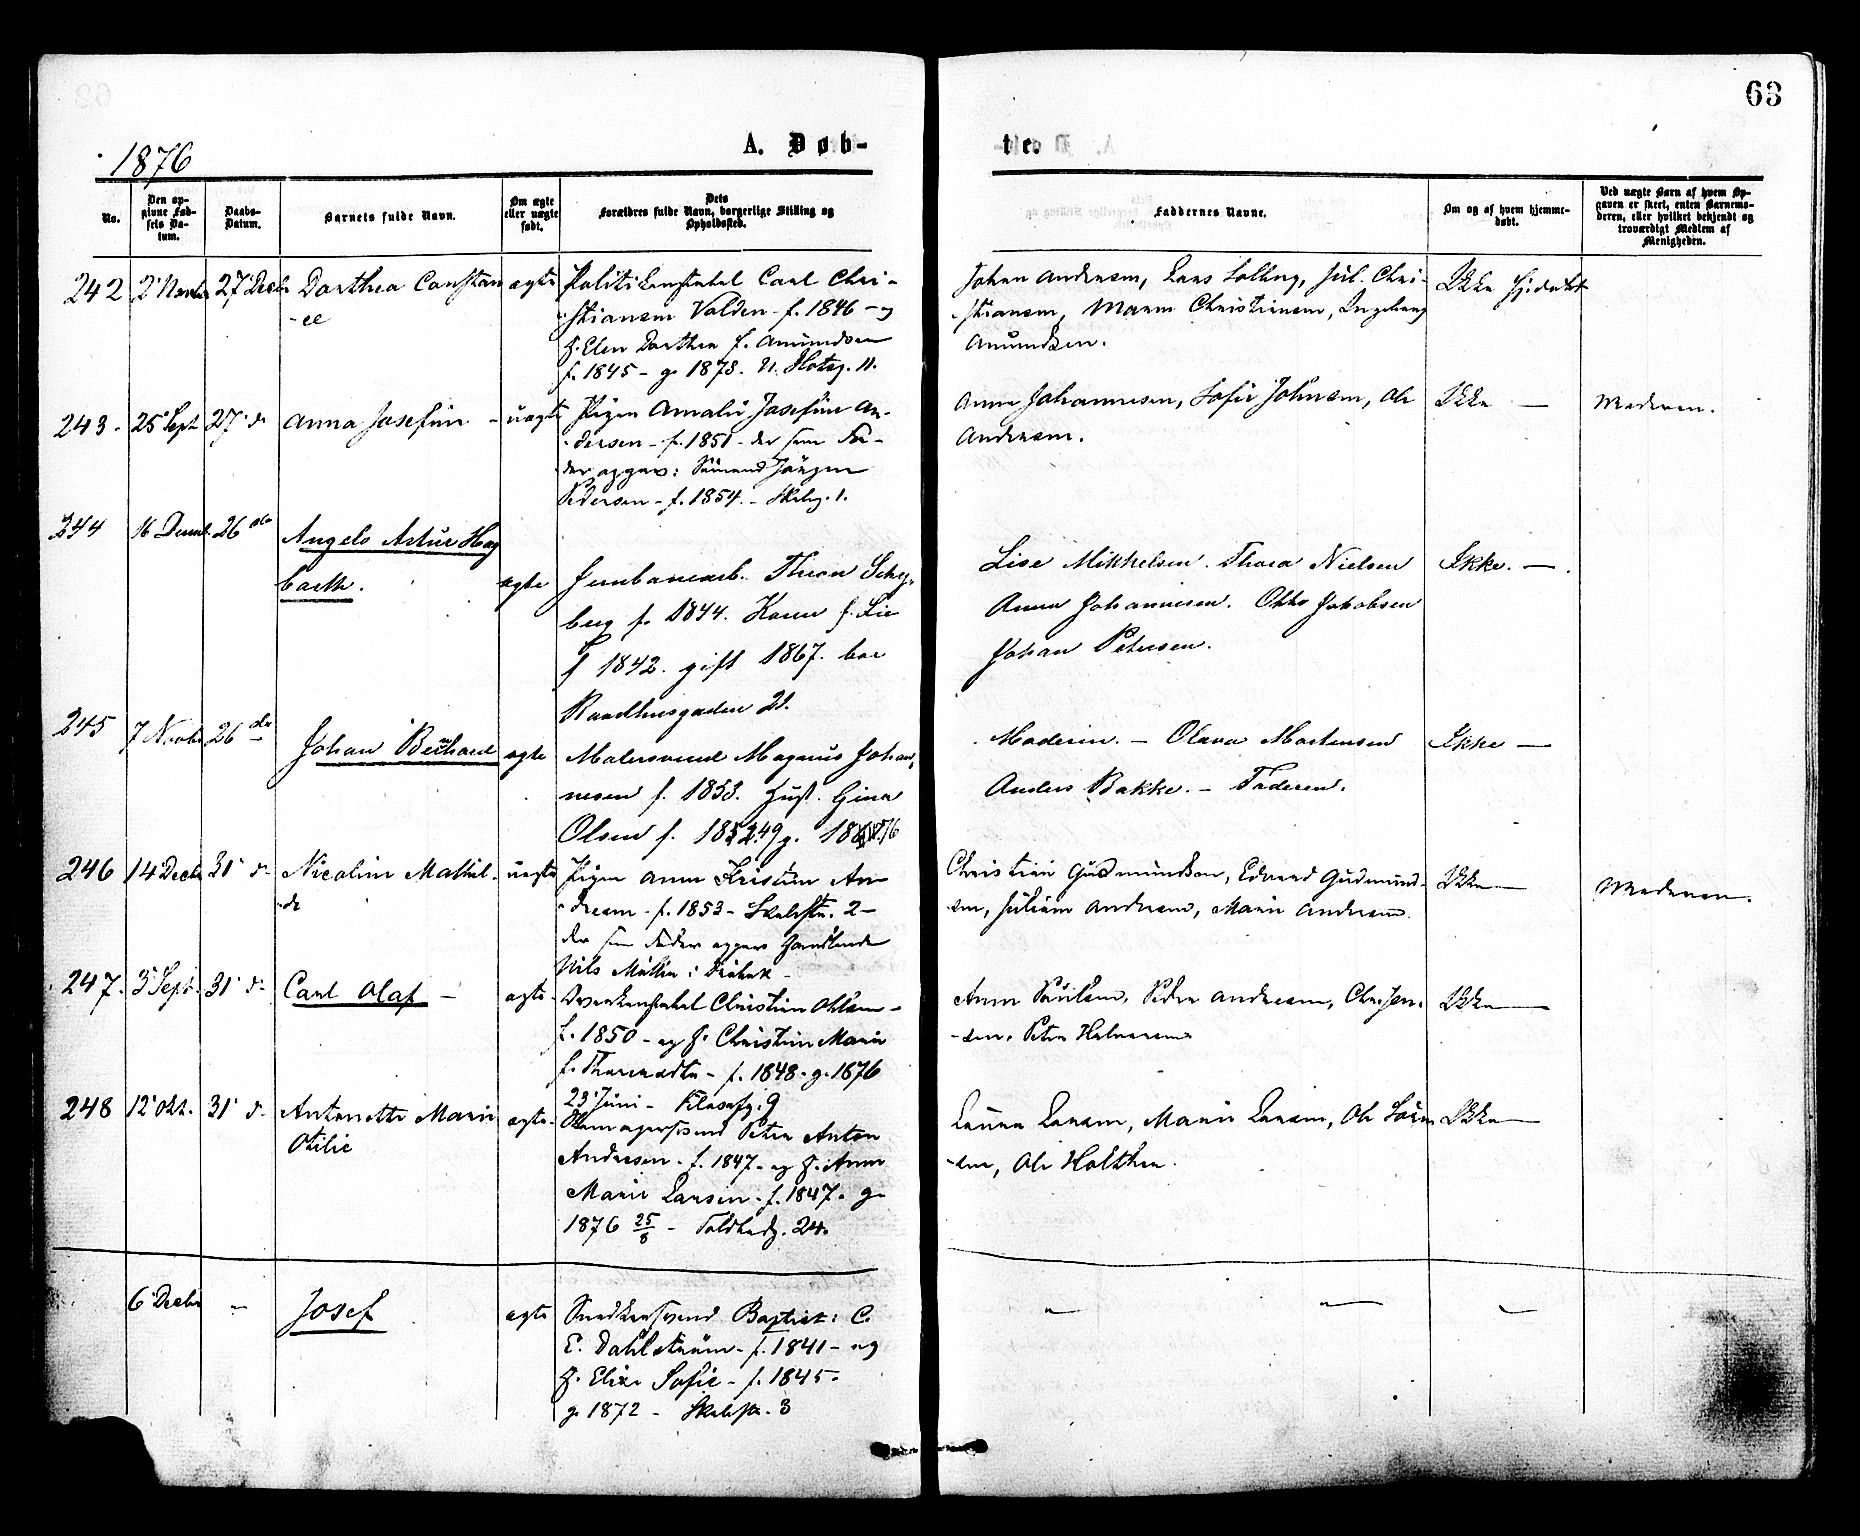 63
1876
A. Døb-
te.
No.
Den op-
givne Fød-
sels Da-
tum.
Daabs-
Datum.
Barnets fulde Navn.
Om ægte
eller uægte
født.
Dets
Forældres fulde Navn, borgerlige Stilling og
Opholdssted.
Faddernes Navne.
Om og af hvem hjemme-
døbt.
Ved uægte Børn af hvem Op-
gaven er skeet, enten Barnemo-
deren, eller hvilket bekjendt og
troværdigt Medlem af
Menigheden.
242 2' Novbr 27' Decbr Dorthea Constan ægte Politikonstabel Carl Chri-
-ce
stiansen Valden - f. 1846 - og
H. Elen Dorthea f. Amundsen
f. 1845 - g. 1873. N. 11.
Johan Andersen, Lars Solberg, Jul. Chri-
stiansen, Maren Christiansen, Ingeborg
Amundsen.
Ikke hjdøbt
243. 25' Sept 27' d Anna Josefine - uægte Pigen Amalie Josefine An-
dersen - f. 1851 - der som Fa-
der opgav: Sømand Jørgen
Pedersen - f. 1854. - 1.
Anna Johannesen, Sofie Johnsen, Ole
Andersen.
Ikke —
Moderen.
244 16 Decemb. 26 do Angelo Artur Hag
barth. ægte Jernbanearb. Thron Schy-
berg f. 1844. Karen f. Lie
f 1842. gift 1867. boe
Raadhusgaden 21.
Lise Mikkelsen. Thora Nielsen
Anna Johannesen. Otto Jakobsen
Johan Petersen.
Ikke. —.
245 7 Novbr 26 do Johan Bernhard ægte Malersvend Magnus Johan-
nesen f. 1853. Hust. Gina
Olsen f. 1849 g. 1876
Moderen. — Olava Mortensen
Anders Bakke. — Faderen.
Ikke —
246 14 Decbr 31' d. Nicoline Mathil- uægte Pigen Anne Kristine An
-de
dresen - f. 1853 - 2 -
der som Fader opgav Handlende
Nils Møller i Drøbak -
Christian Gudmundsen, Edvard Gudmund-
sen, Juliane Andersen, Marie Andersen.
Ikke —
Moderen.
247. 3' Sept. 31' d. Carl Olaf — ægte. Christian Ohlsen -
f. 1850 - og H. Christine Marie
f. - f. 1848 - g. 1876
23' Juni - 9
Anne Paulsen, Peder Andersen, Chr. Jen-
sen. Petra Halvorsen
Ikke —
248 12' Okt. 31' d. Antonette Marie ægte.
Otilie
Petter Anton
Andresen - f. 1847 - og H. Anne
Marie Larsen - f. 1847 - g.
1876 25/8 - Toldbodg. 24.
Laura Larsen, Marie Larsen, Ole Søren
-sen, Ole Holther.
Ikke —
6' Decbr - Josef ægte Snedkersvend Baptist: C.
E. Dahlstrøm - f. 1841 - og
H. Elise Sofie - f. 1845 -
g. 1872 - 3